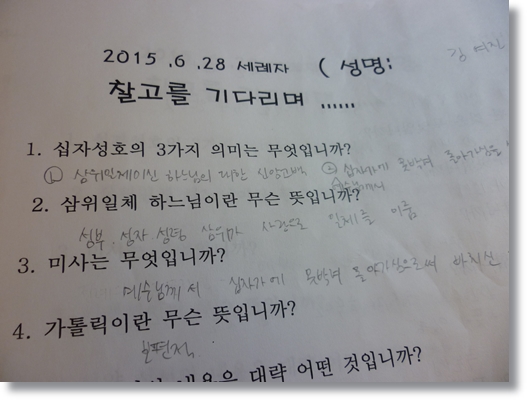 2015 .6 .28 세례자 ( 성명: 김 여진
찰고를 기다리며 ......
1. 십자성호의 3가지 의미는 무엇입니까?
① 하느님의 대한 신앙고백 ② 십자가에 못박혀 돌아가심을
2. 삼위일체 하느님이란 무슨 뜻입니까?
성부 성자 성령 일체를 이룸
3. 미사는 무엇입니까?
예수님께서 십자가에 못박혀 돌아가심으로써 바치신
4. 가톨릭이란 무슨 뜻입니까?
보편적.
내용은 대략 어떤 것입니까?